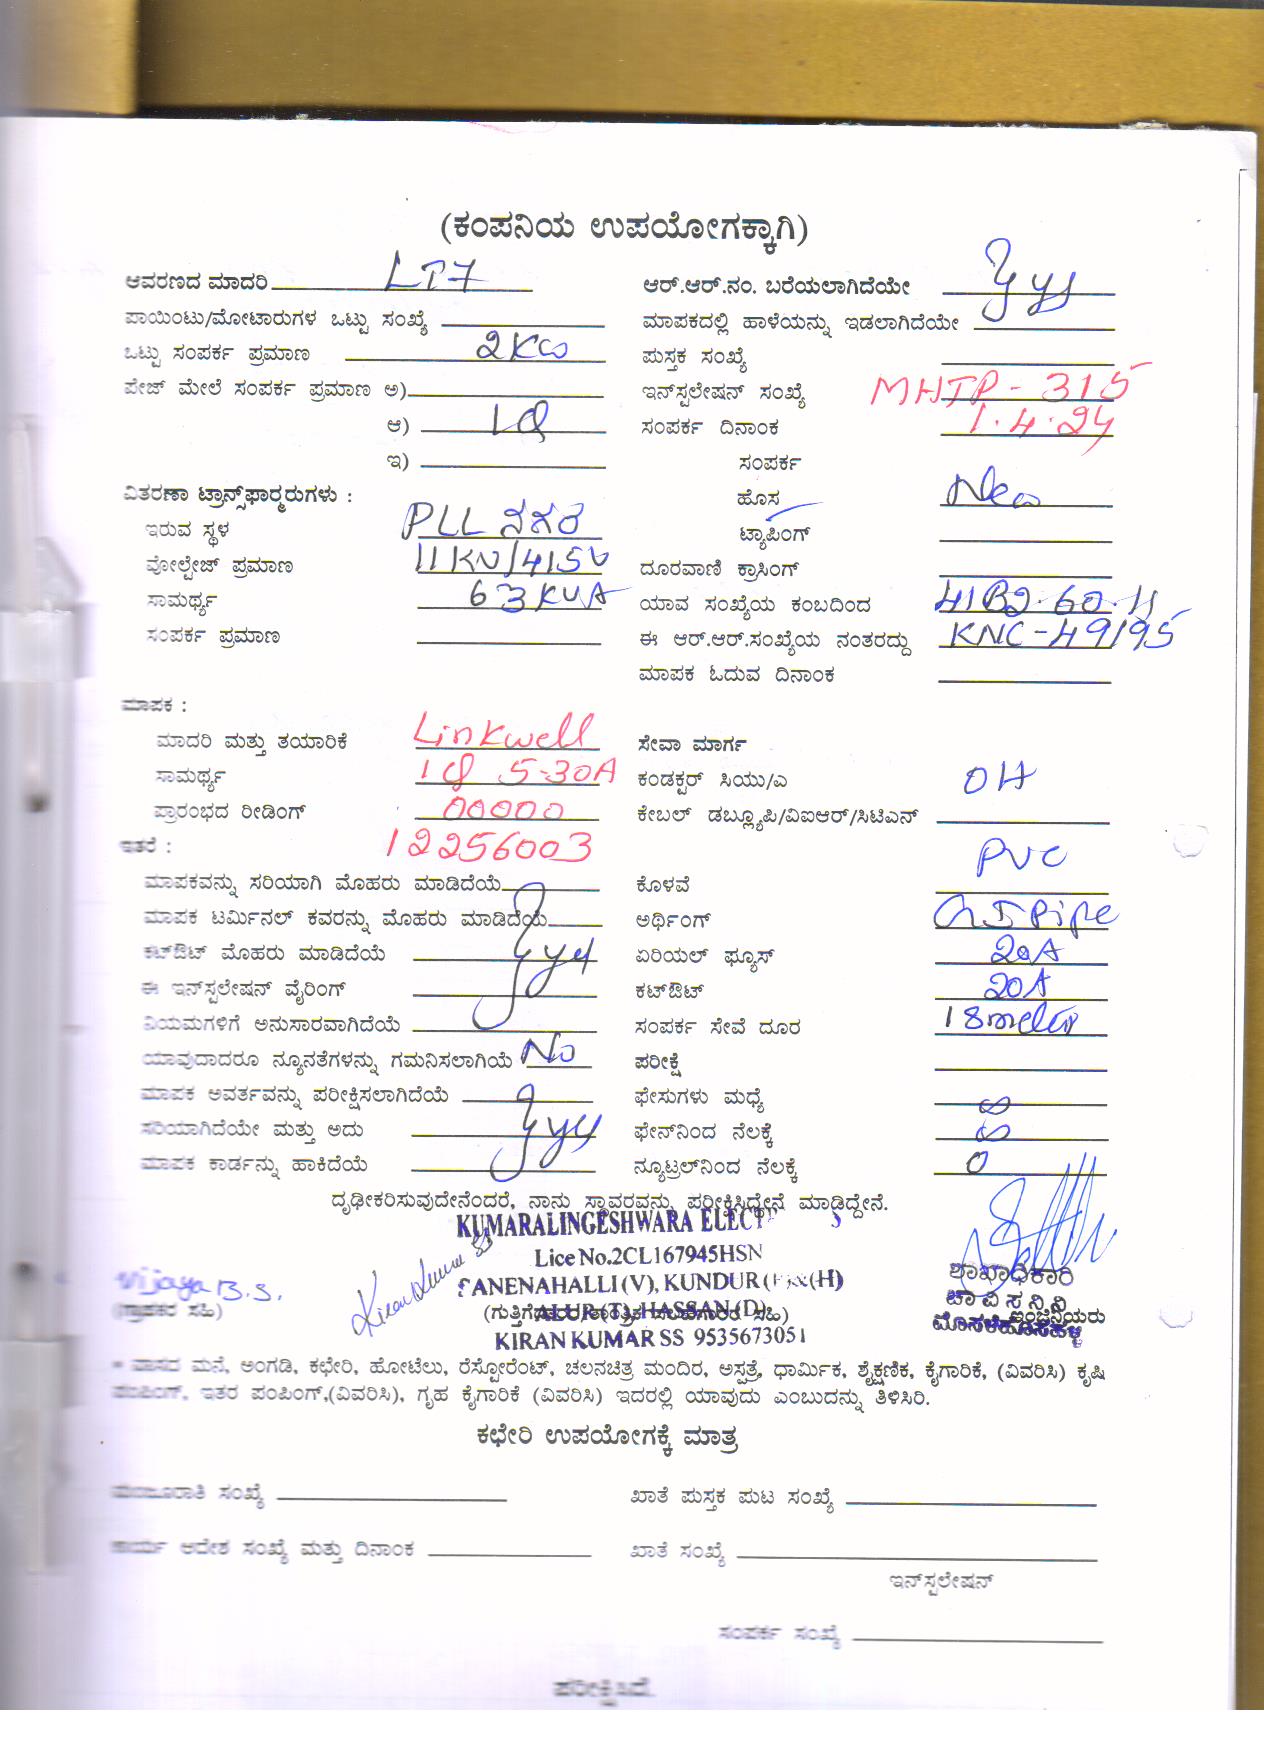 (ಕಂಪನಿಯ ಉಪಯೋಗಕ್ಕಾಗಿ)
ಆವರಣದ ಮಾದರಿ LT7 ಆರ್.ಆರ್.ನಂ. ಬರೆಯಲಾಗಿದೆಯೇ
ಪಾಯಿಂಟು/ಮೋಟಾರುಗಳ ಒಟ್ಟು ಸಂಖ್ಯೆ ಮಾಪಕದಲ್ಲಿ ಹಾಳೆಯನ್ನು ಇಡಲಾಗಿದೆಯೇ
ಒಟ್ಟು ಸಂಪರ್ಕ ಪ್ರಮಾಣ 2KW ಪುಸ್ತಕ ಸಂಖ್ಯೆ
ಪೇಜ್ ಮೇಲೆ ಸಂಪರ್ಕ ಪ್ರಮಾಣ ಅ) ಇನ್‌ಸ್ಟಲೇಷನ್ ಸಂಖ್ಯೆ MHTP-315
ಆ) 1φ ಸಂಪರ್ಕ ದಿನಾಂಕ 1.4.24
ಇ) ಸಂಪರ್ಕ
ವಿತರಣಾ ಟ್ರಾನ್ಸ್‌ಫಾರ್ಮರುಗಳು : ಹೊಸ New
ಇರುವ ಸ್ಥಳ PLL ನಗರ ಟ್ಯಾಪಿಂಗ್
ವೋಲ್ಟೇಜ್ ಪ್ರಮಾಣ 11KV/415V ದೂರವಾಣಿ ಕ್ರಾಸಿಂಗ್
ಸಾಮರ್ಥ್ಯ 63KVA ಯಾವ ಸಂಖ್ಯೆಯ ಕಂಬದಿಂದ
ಸಂಪರ್ಕ ಪ್ರಮಾಣ ಈ ಆರ್.ಆರ್.ಸಂಖ್ಯೆಯ ನಂತರದ್ದು KNC-49195
ಮಾಪಕ ಓದುವ ದಿನಾಂಕ
ಮಾಪಕ :
ಮಾದರಿ ಮತ್ತು ತಯಾರಿಕೆ Linkwell ಸೇವಾ ಮಾರ್ಗ
ಸಾಮರ್ಥ್ಯ 1φ 5-30A ಕಂಡಕ್ಟರ್ ಸಿಯು/ಎ OH
ಪ್ರಾರಂಭದ ರೀಡಿಂಗ್ 00000 ಕೇಬಲ್ ಡಬ್ಲ್ಯೂಪಿ/ವಿಐಆರ್/ಸಿಟಿಎನ್
ಇತರೆ : 12256003
ಮಾಪಕವನ್ನು ಸರಿಯಾಗಿ ಮೊಹರು ಮಾಡಿದೆಯೆ ಕೊಳವೆ PVC
ಮಾಪಕ ಟರ್ಮಿನಲ್ ಕವರನ್ನು ಮೊಹರು ಮಾಡಿದೆಯೆ ಅರ್ಥಿಂಗ್ Pipe
ಕಟ್‌ಔಟ್ ಮೊಹರು ಮಾಡಿದೆಯೆ ಏರಿಯಲ್ ಫ್ಯೂಸ್ 20A
ಈ ಇನ್‌ಸ್ಟಲೇಷನ್ ವೈರಿಂಗ್ ಕಟ್‌ಔಟ್ 20A
ನಿಯಮಗಳಿಗೆ ಅನುಸಾರವಾಗಿದೆಯೆ ಸಂಪರ್ಕ ಸೇವೆ ದೂರ 18meter
ಯಾವುದಾದರೂ ನ್ಯೂನತೆಗಳನ್ನು ಗಮನಿಸಲಾಗಿಯೆ No ಪರೀಕ್ಷೆ
ಮಾಪಕ ಅವರ್ತವನ್ನು ಪರೀಕ್ಷಿಸಲಾಗಿದೆಯೆ ಫೇಸುಗಳು ಮಧ್ಯೆ ∞
ಸರಿಯಾಗಿದೆಯೇ ಮತ್ತು ಅದು ಫೇನ್‌ನಿಂದ ನೆಲಕ್ಕೆ ∞
ಮಾಪಕ ಕಾರ್ಡನ್ನು ಹಾಕಿದೆಯೆ ನ್ಯೂಟ್ರಲ್‌ನಿಂದ ನೆಲಕ್ಕೆ 0
ದೃಢೀಕರಿಸುವುದೇನೆಂದರೆ, ನಾನು ಸ್ಥಾವರವನ್ನು ಪರೀಕ್ಷಿಸಿದ್ದೇನೆ ಮಾಡಿದ್ದೇನೆ.
KUMARALINGESHWARA ELECT
Lice No.2CL167945HSN
Vijaya B.S. Kiran Kumar SS SANENAHALLI (V), KUNDUR (H) ಶಾಖಾಧಿಕಾರಿ
(ಗ್ರಾಹಕರ ಸಹಿ) ALUR (T), HASSAN (D) ಚಾ ವಿ ಸ ನಿ ನಿ ಇಂಜಿನಿಯರು
KIRAN KUMAR SS 9535673051
* ವಾಸದ ಮನೆ, ಅಂಗಡಿ, ಕಛೇರಿ, ಹೋಟೆಲು, ರೆಸ್ಟೋರೆಂಟ್, ಚಲನಚಿತ್ರ ಮಂದಿರ, ಅಸ್ಪತ್ರೆ, ಧಾರ್ಮಿಕ, ಶೈಕ್ಷಣಿಕ, ಕೈಗಾರಿಕೆ, (ವಿವರಿಸಿ) ಕೃಷಿ
ಪಂಪಿಂಗ್, ಇತರ ಪಂಪಿಂಗ್,(ವಿವರಿಸಿ), ಗೃಹ ಕೈಗಾರಿಕೆ (ವಿವರಿಸಿ) ಇದರಲ್ಲಿ ಯಾವುದು ಎಂಬುದನ್ನು ತಿಳಿಸಿರಿ.
ಕಛೇರಿ ಉಪಯೋಗಕ್ಕೆ ಮಾತ್ರ
ಮಂಜೂರಾತಿ ಸಂಖ್ಯೆ ಖಾತೆ ಪುಸ್ತಕ ಪುಟ ಸಂಖ್ಯೆ
ಕಾರ್ಯ ಆದೇಶ ಸಂಖ್ಯೆ ಮತ್ತು ದಿನಾಂಕ ಖಾತೆ ಸಂಖ್ಯೆ
ಇನ್‌ಸ್ಟಲೇಷನ್
ಸಂಪರ್ಕ ಸಂಖ್ಯೆ
ಪರೀಕ್ಷಿಸಿದೆ.